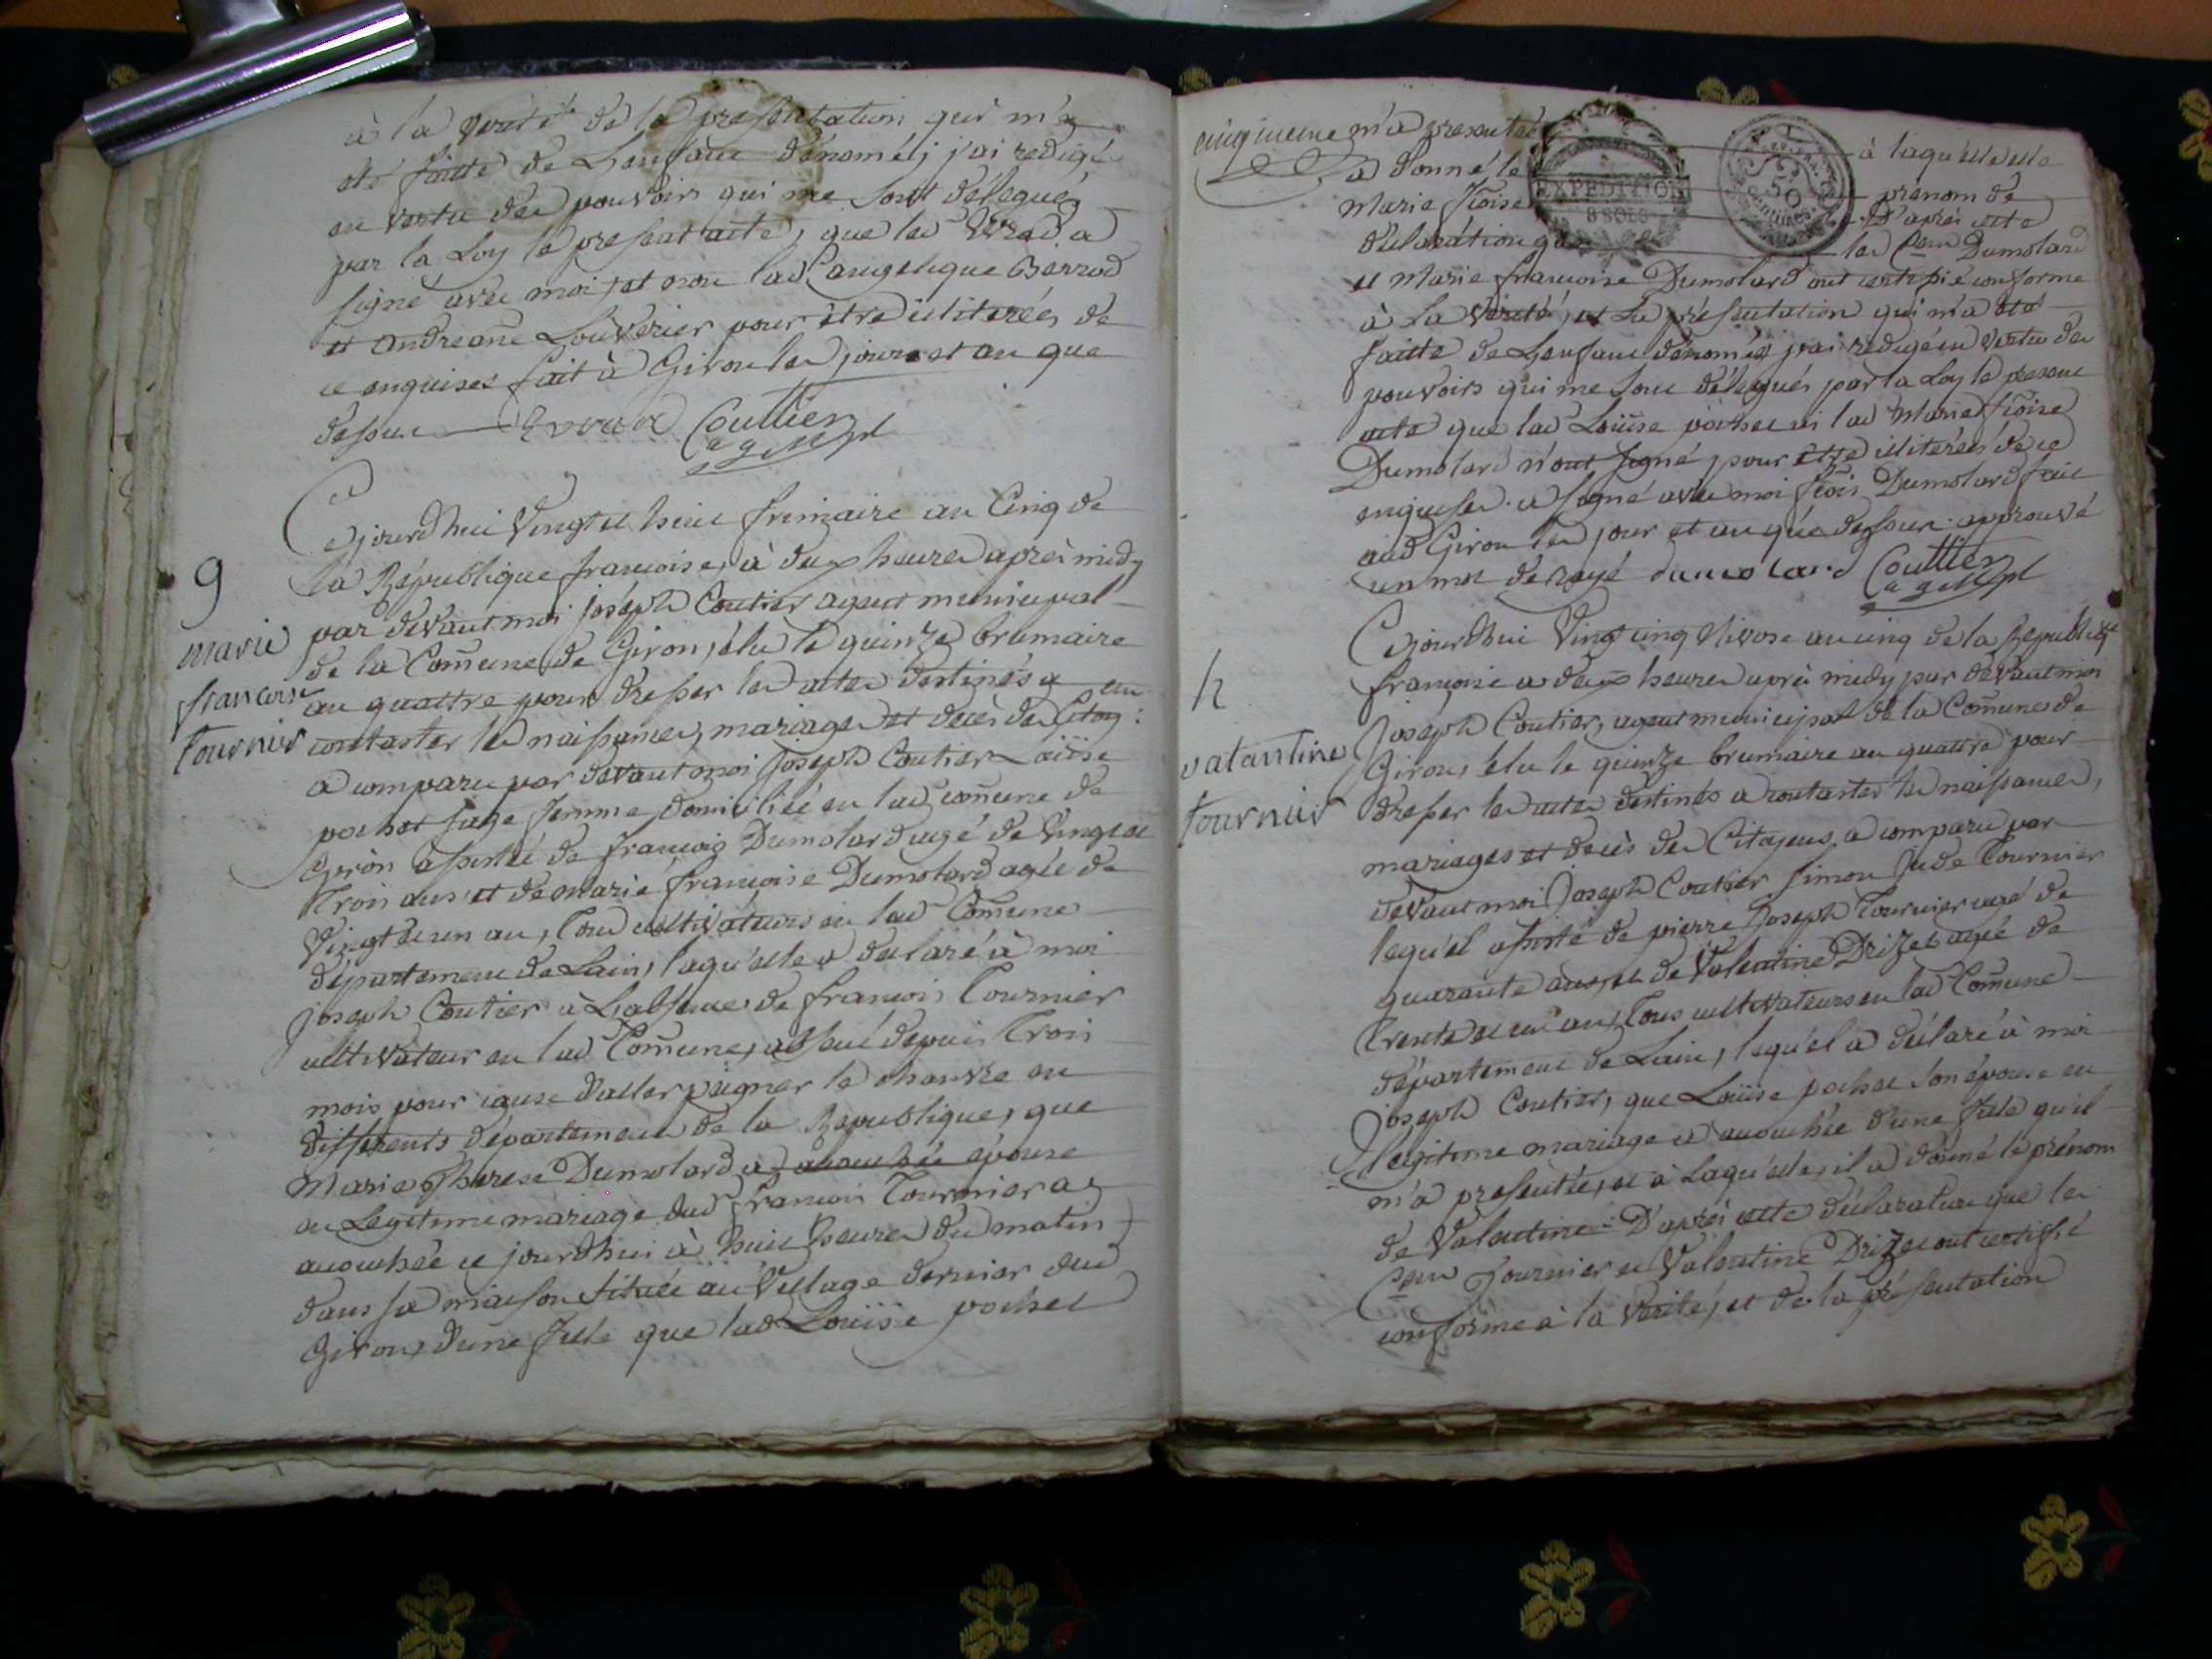 à la verité de la presentation qui m'a
eté faitte de Lenfant dénomé, j'ai redigé
en vertu des pouvoirs qui me sont delegués
par la Loy le present acte, que led Evrad a
signé avec moi, et non lad angelique Berrod
et andreane Louverier pour être iliterées, de
ce enquises fait à Giron les jours et an que
dessus Evvrad Couttier
agt Mpl
Cejourd'hui Vingt et huit frimaire an Cinq de
la République francoise, à deux heures après midy
9
par devant moi joséph Coutier agent municipal
marie
de la Comune de Giron, élu le quinze brumaire
francoise
an quattre pour dresser les actes destinés a en
tournier
contaster les naissances, mariages et decès des Citoy:
a comparu par devant moi Joseph Coutier Loüise
pochet sage femme domiciliée en lad comune de
Giron assistée de francois Dumolard agé de Vingt et
Trois ans et de marie francoise Dumolard agée de
Vingt et un an, Tous cultivateurs en lad Comune
département de Lain, laqu'elle a déclaré à moi
Joseph Coutier à Labsence de francois Tournier
cultivateur en lad Comune, absent depuis Trois
mois pour cause d'aller peigner le chanvre en
differents départements de la Republique, que
Marie Therese Dumolard a acouchée épouse
en Legitime mariage dud francois Tournier a
acouchée ce jourdhui à huit heures du matin
dans sa maison située au Village dernier dud
Giron, d'une fille que lad Loüise pochet
cinquieme m'a presentée à laqu'elle elle
a donné le prénom de
EXPEDITION
8 SOLS
50
Centimes
Marie fcoise D'après cette
déclaration que les Cens Dumolard
et Marie francoise Dumolard ont certifié conforme
à la verité, et La présentation qui m'a été
faitte de Lenfant dénomée j'ai redigé en vertu des
pouvoirs qui me sont délegués par la Loy le present
acte que lad Loüise pochet ni lad Marie fcoise
Dumolard n'ont signé, pour être iliterées de ce
enquises a signé avec moi fcois Dumolard fait
aud Giron les jour et an que dessus approuvé
un mot de rayé dumolard Couttier
agt Mpl
Cejourd'hui Vingt cinq Nivose an cinq de la Republiqe
françoise a deux heures après midy par devant moi
h
Joseph Coutier, agent municipal de la Comune de
valantine
Giron, élu le quinze brumaire an quattre pour
tournier
dresser les actes destinés a contaster les naissances,
mariages et decès des Citoyens, a comparu par
devant moi Joseph Coutier Simon Jude Tournier
lequ'el assisté de pierre Joseph Tournier agé de
quarante ans, et de Valentine Drizet agée de
Trente et un an, Tous cultivateurs en lad Comune
département de Lain, lequ'el a déclaré à moi
Joseph Coutier, que Loüise pochet son épouse en
légitime mariage a acouchée d'une fille qu'il
m'a presentée, et à Laqu'elle, il a donné le prénom
de Valentine. D'après cette déclaration que les
Cens Tournier et Valentine Drizet ont certifié
conforme à la verité, et de la présentation